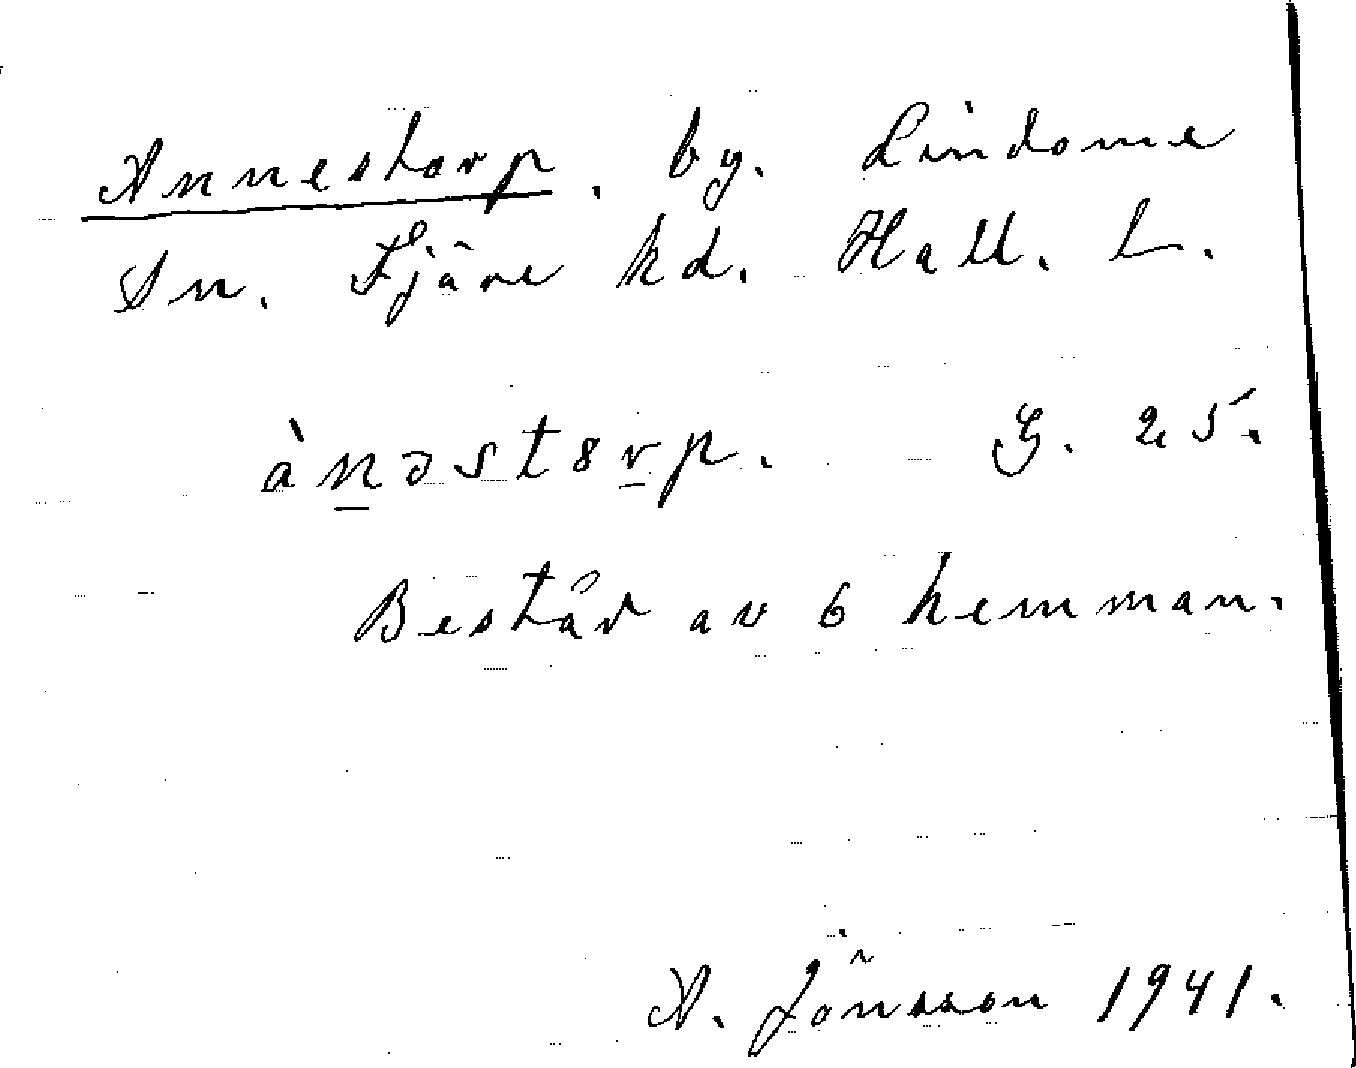 Annestorp. by. Lindome
Sn. Fjäre hd. Hall. L.
ànəstɵrp. G. 25.
Består av 6 hemman.
A. Jönsson 1941.